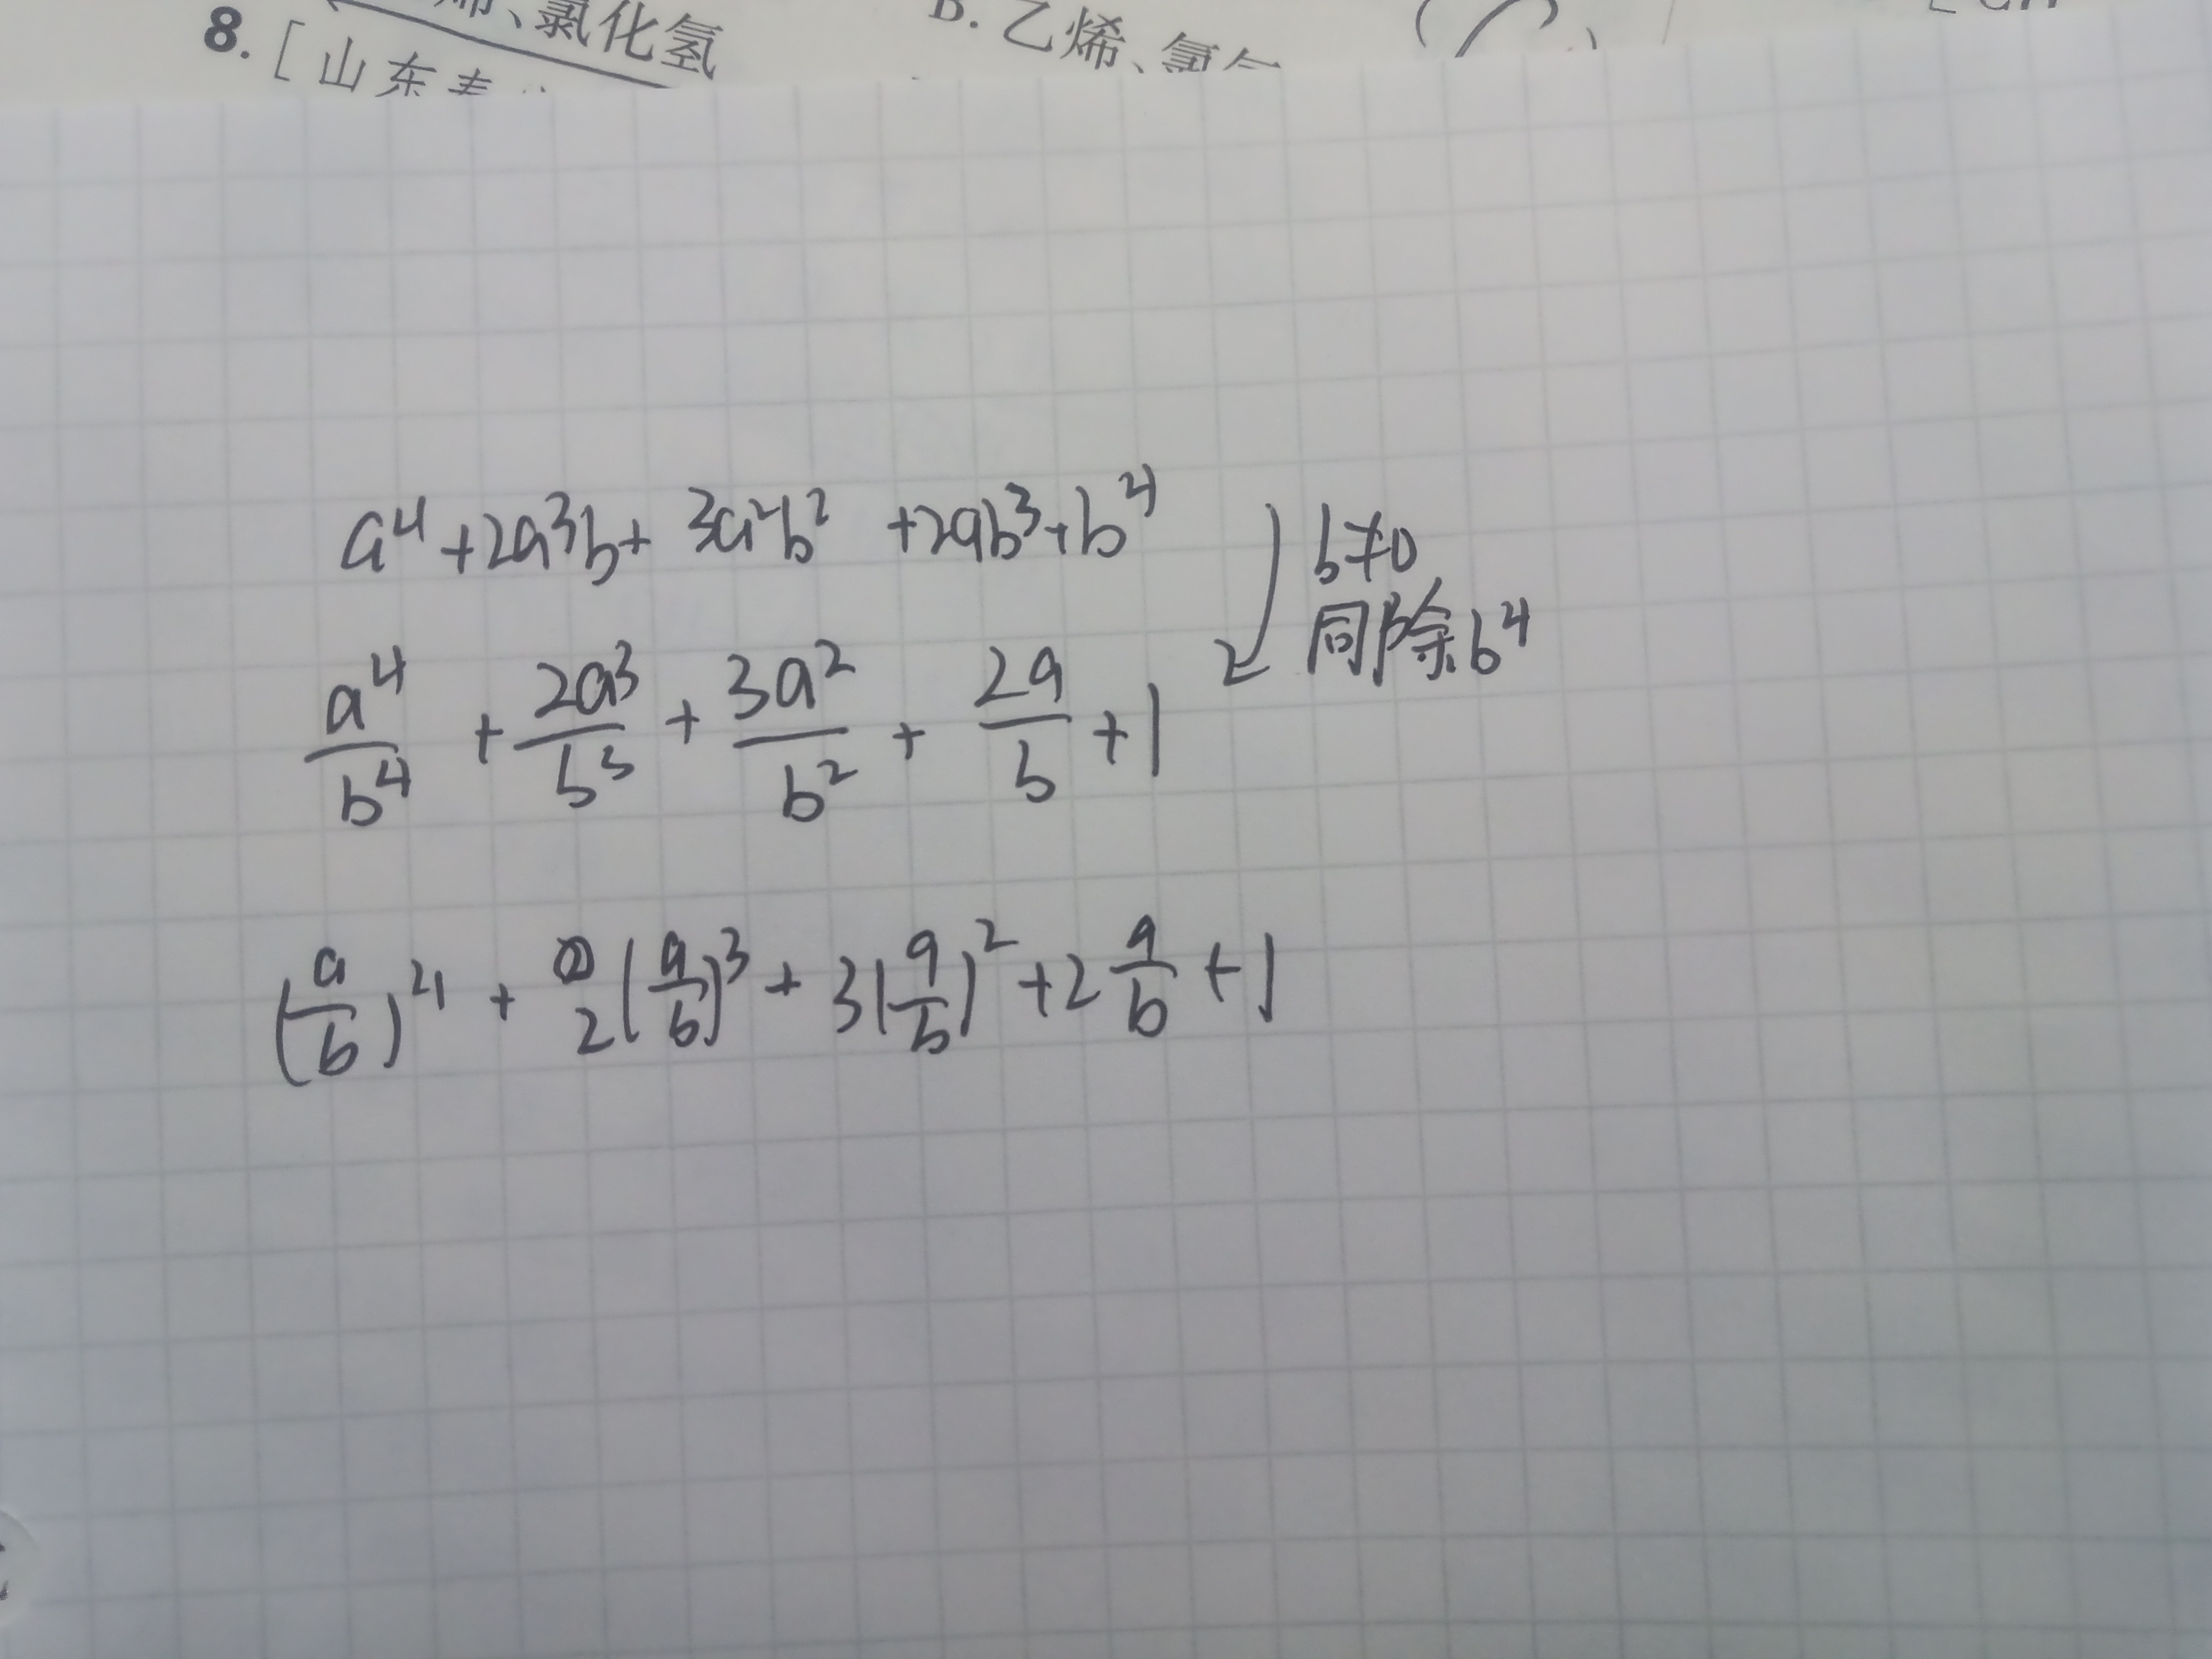 、氯化氢
B. 乙烯、氯气
8. [山东
a⁴+2a³b+3a²b²+2ab³+b⁴
b≠0
同除b⁴
a⁴/b⁴ + 2a³/b³ + 3a²/b² + 2a/b +1
(a/b)⁴ + 2(a/b)³ + 3(a/b)² +2 a/b +1